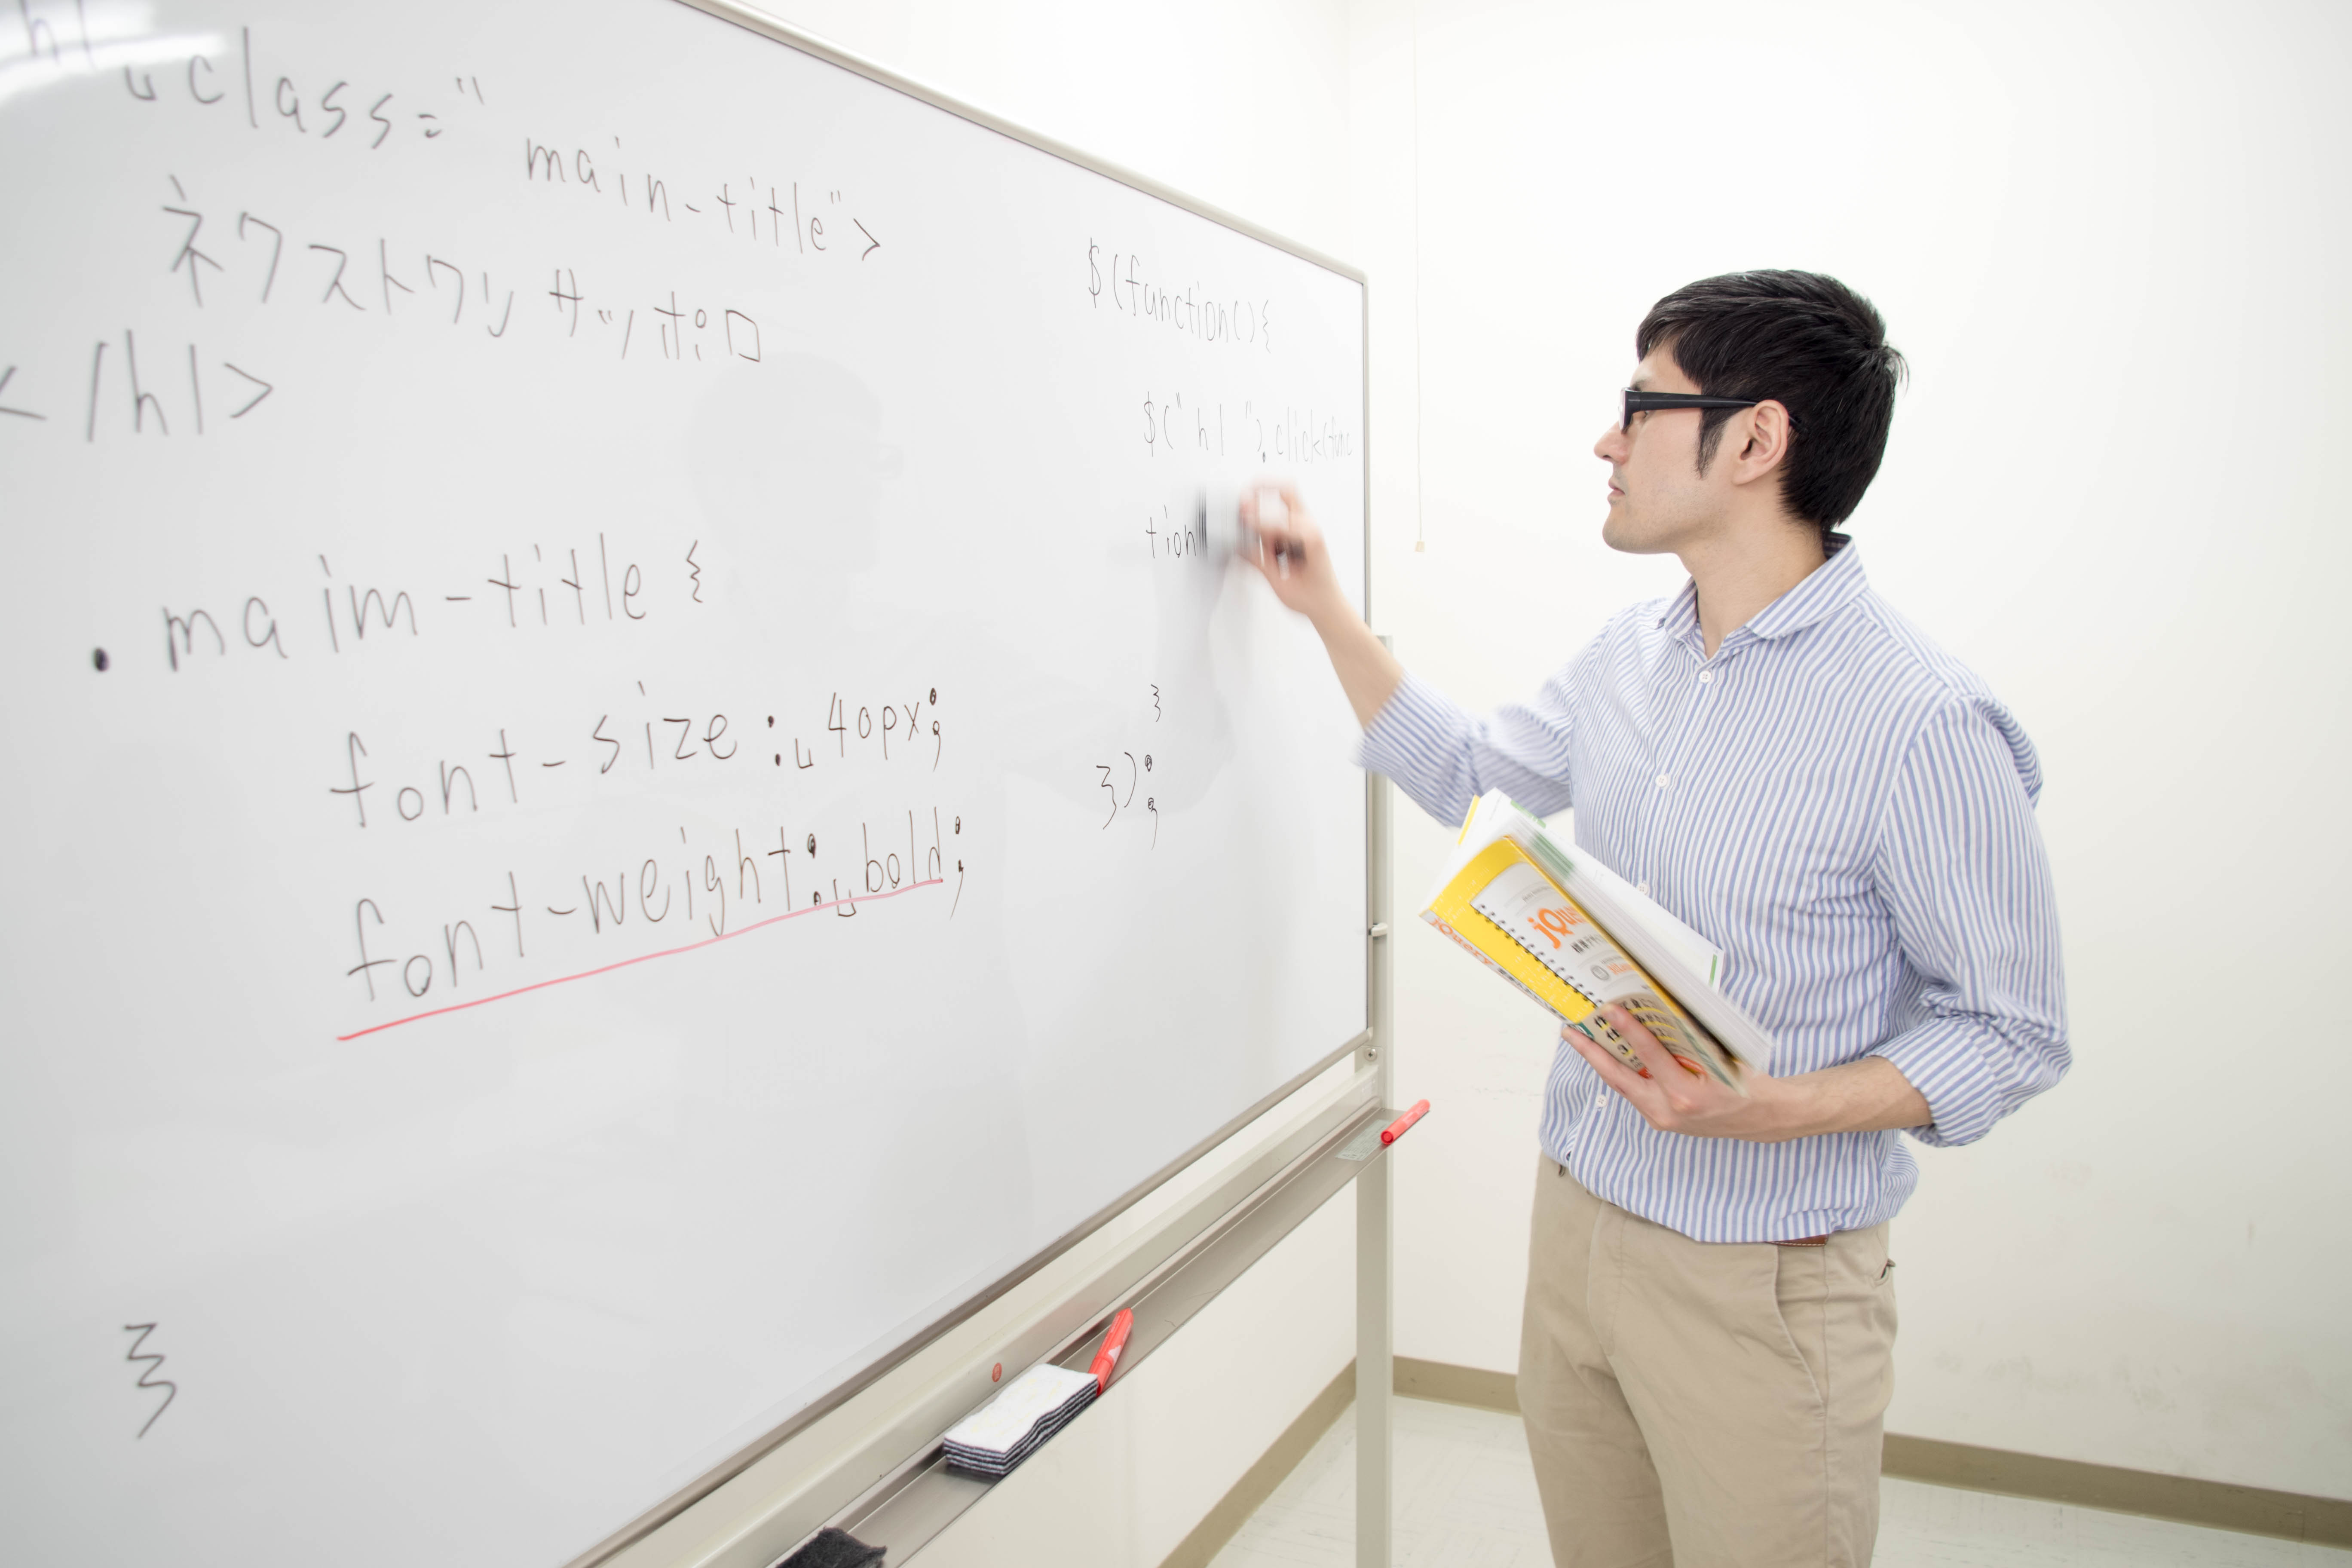 h1␣class="
main-title">
ネクストワリ サッポロ
</h1>
.maim-title {
font-size:␣40px;
font-weight:␣bold;
}
$(function(){
$("h1").click(func
tion
}
});
jQuery